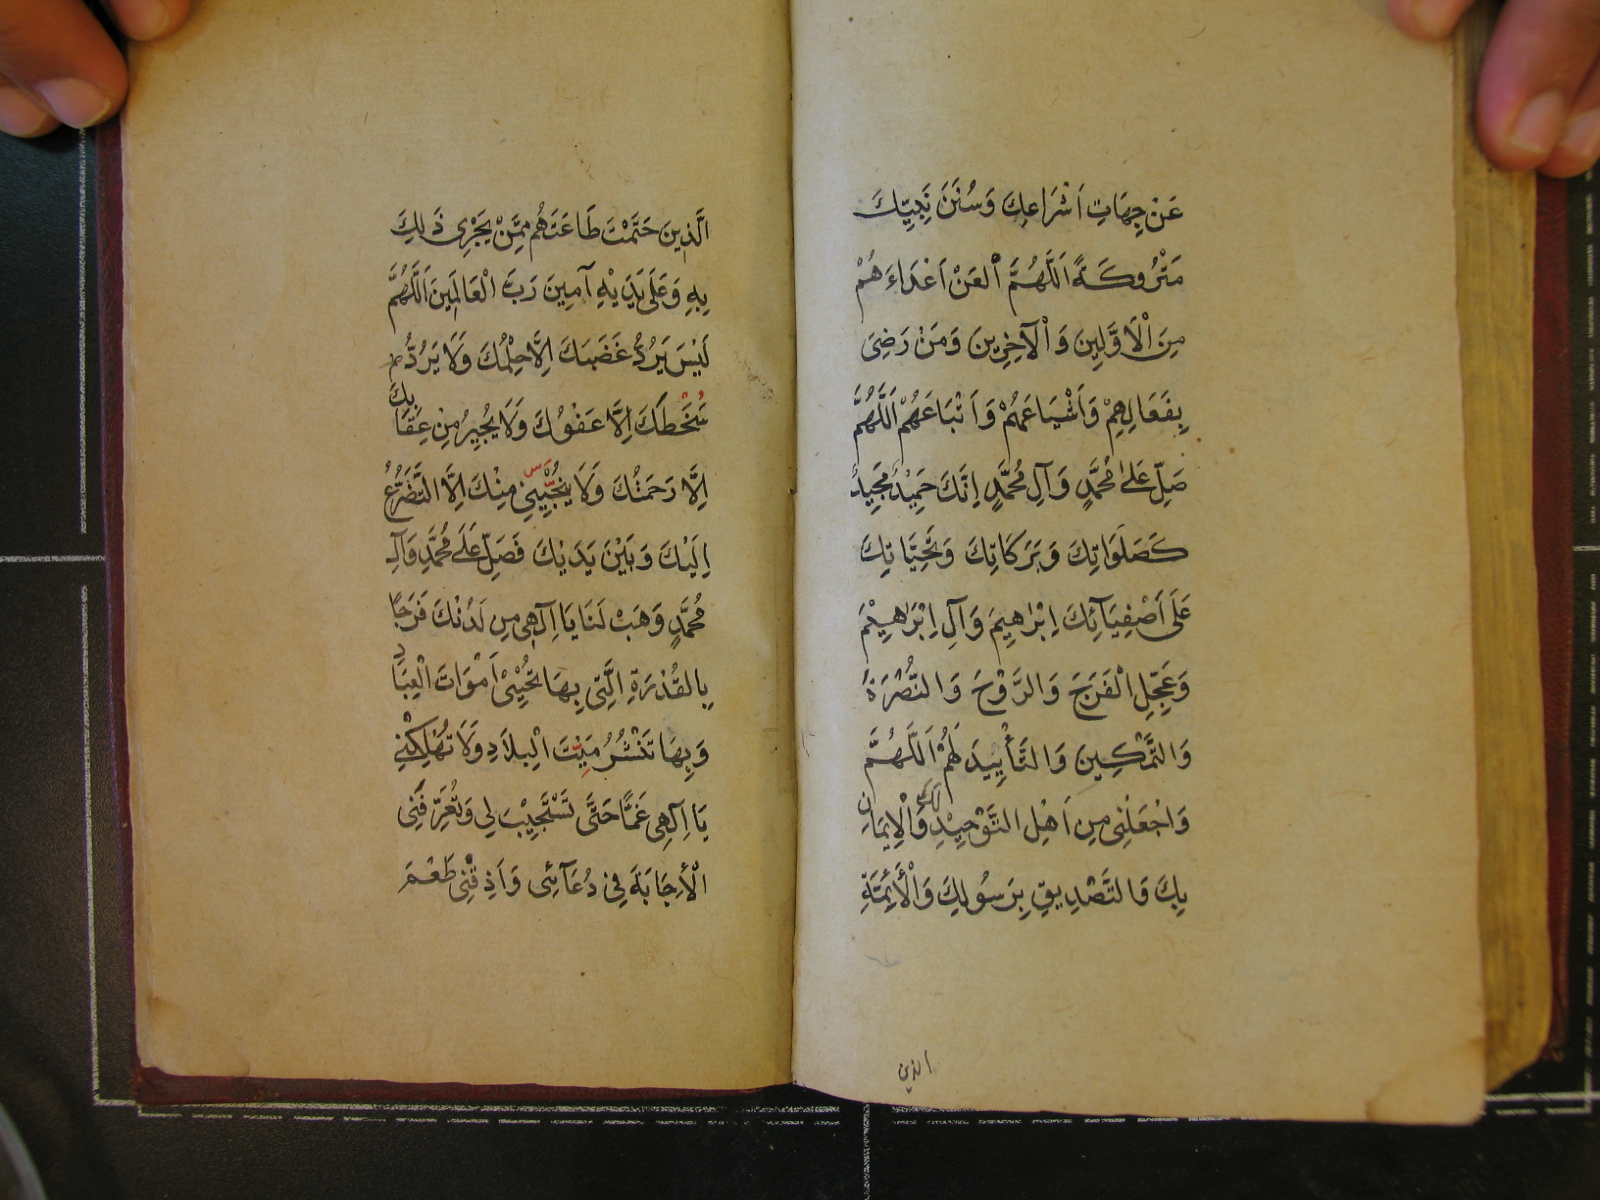 عَنْ جِهَاتِ اَشْرَاعِكَ وَسُنَنَ نَبِيِّكَ
مَتْرُوكَةً اَللَّهُمَّ الْعَنْ اَعْدَاءَهُمْ
مِنَ الْاَوَّلِينَ وَالْآخِرِينَ وَمَنْ رَضِىَ
بِفَعَالِهِمْ وَاَشْيَاعَهُمْ وَاَتْبَاعَهُمْ اَللَّهُمَّ
صَلِّ عَلىٰ مُحَمَّدٍ وَآلِ مُحَمَّدٍ اِنَّكَ حَمِيْدٌ مَجِيدٌ
كَصَلَوَاتِكَ وَبَرَكَاتِكَ وَتَحِيَّاتِكَ
عَلَى اَصْفِيَآئِكَ اِبْرٰهِيمَ وَآلِ اِبْرٰهِيْمَ
وَعَجِّلِ الْفَرَجَ وَالرَّوْحَ وَالنُّصْرَةَ
وَالتَّمْكِينَ وَالتَّأْيِيدَ لَهُمْ اَللَّهُمَّ
وَاجْعَلْنِى مِن اَهْلِ التَّوْحِيْدِ وَالْاِيمَانِ
بِكَ وَالتَّصْدِيقِ بِرَسُولِكَ وَالْأَئِمَّةِ
الذين
الَّذِينَ حَتَمْتَ طَاعَتَهُم مِمَّنْ يَجْرِى ذَلِكَ
بِهِ وَعَلَى يَدَيْهِ آمِينَ رَبَّ الْعَالَمِينَ اَللَّهُمَّ
لَيْسَ يَرُدُّ غَضَبَكَ اِلَّا حِلْمُكَ وَلَا يَرُدُّ
سُخْطَكَ اِلَّا عَفْوُكَ وَلَا يُجِيرُ مِنْ عِقَابِكَ
اِلَّا رَحْمَتُكَ وَلَا يُنْجِيْنِى مِنْكَ اِلَّا التَّضَرُّعُ
اِلَيْكَ وَبَيْنَ يَدَيْكَ فَصَلِّ عَلَى مُحَمَّدٍ وَآلِ
مُحَمَّدٍ وَهَبْ لَنَا يَا اِلٰهِى مِن لَدُنْكَ فَرَجًا
بِالقُدْرَةِ الَّتِى بِهَا تُحْيِىْ اَمْوَاتَ الْعِبَادِ
وَبِهَا تَنْشُرُ مَيِّتَ الْبِلَادِ وَلَا تُهْلِكْنِي
يَا اِلٰهِى غَمًّا حَتَّى تَسْتَجِيْبَ لِي وَتُعَرِّفَنِى
الْأِجَابَةَ فِى دُعَآئِى وَاَذِقْنِى طَعْمَ